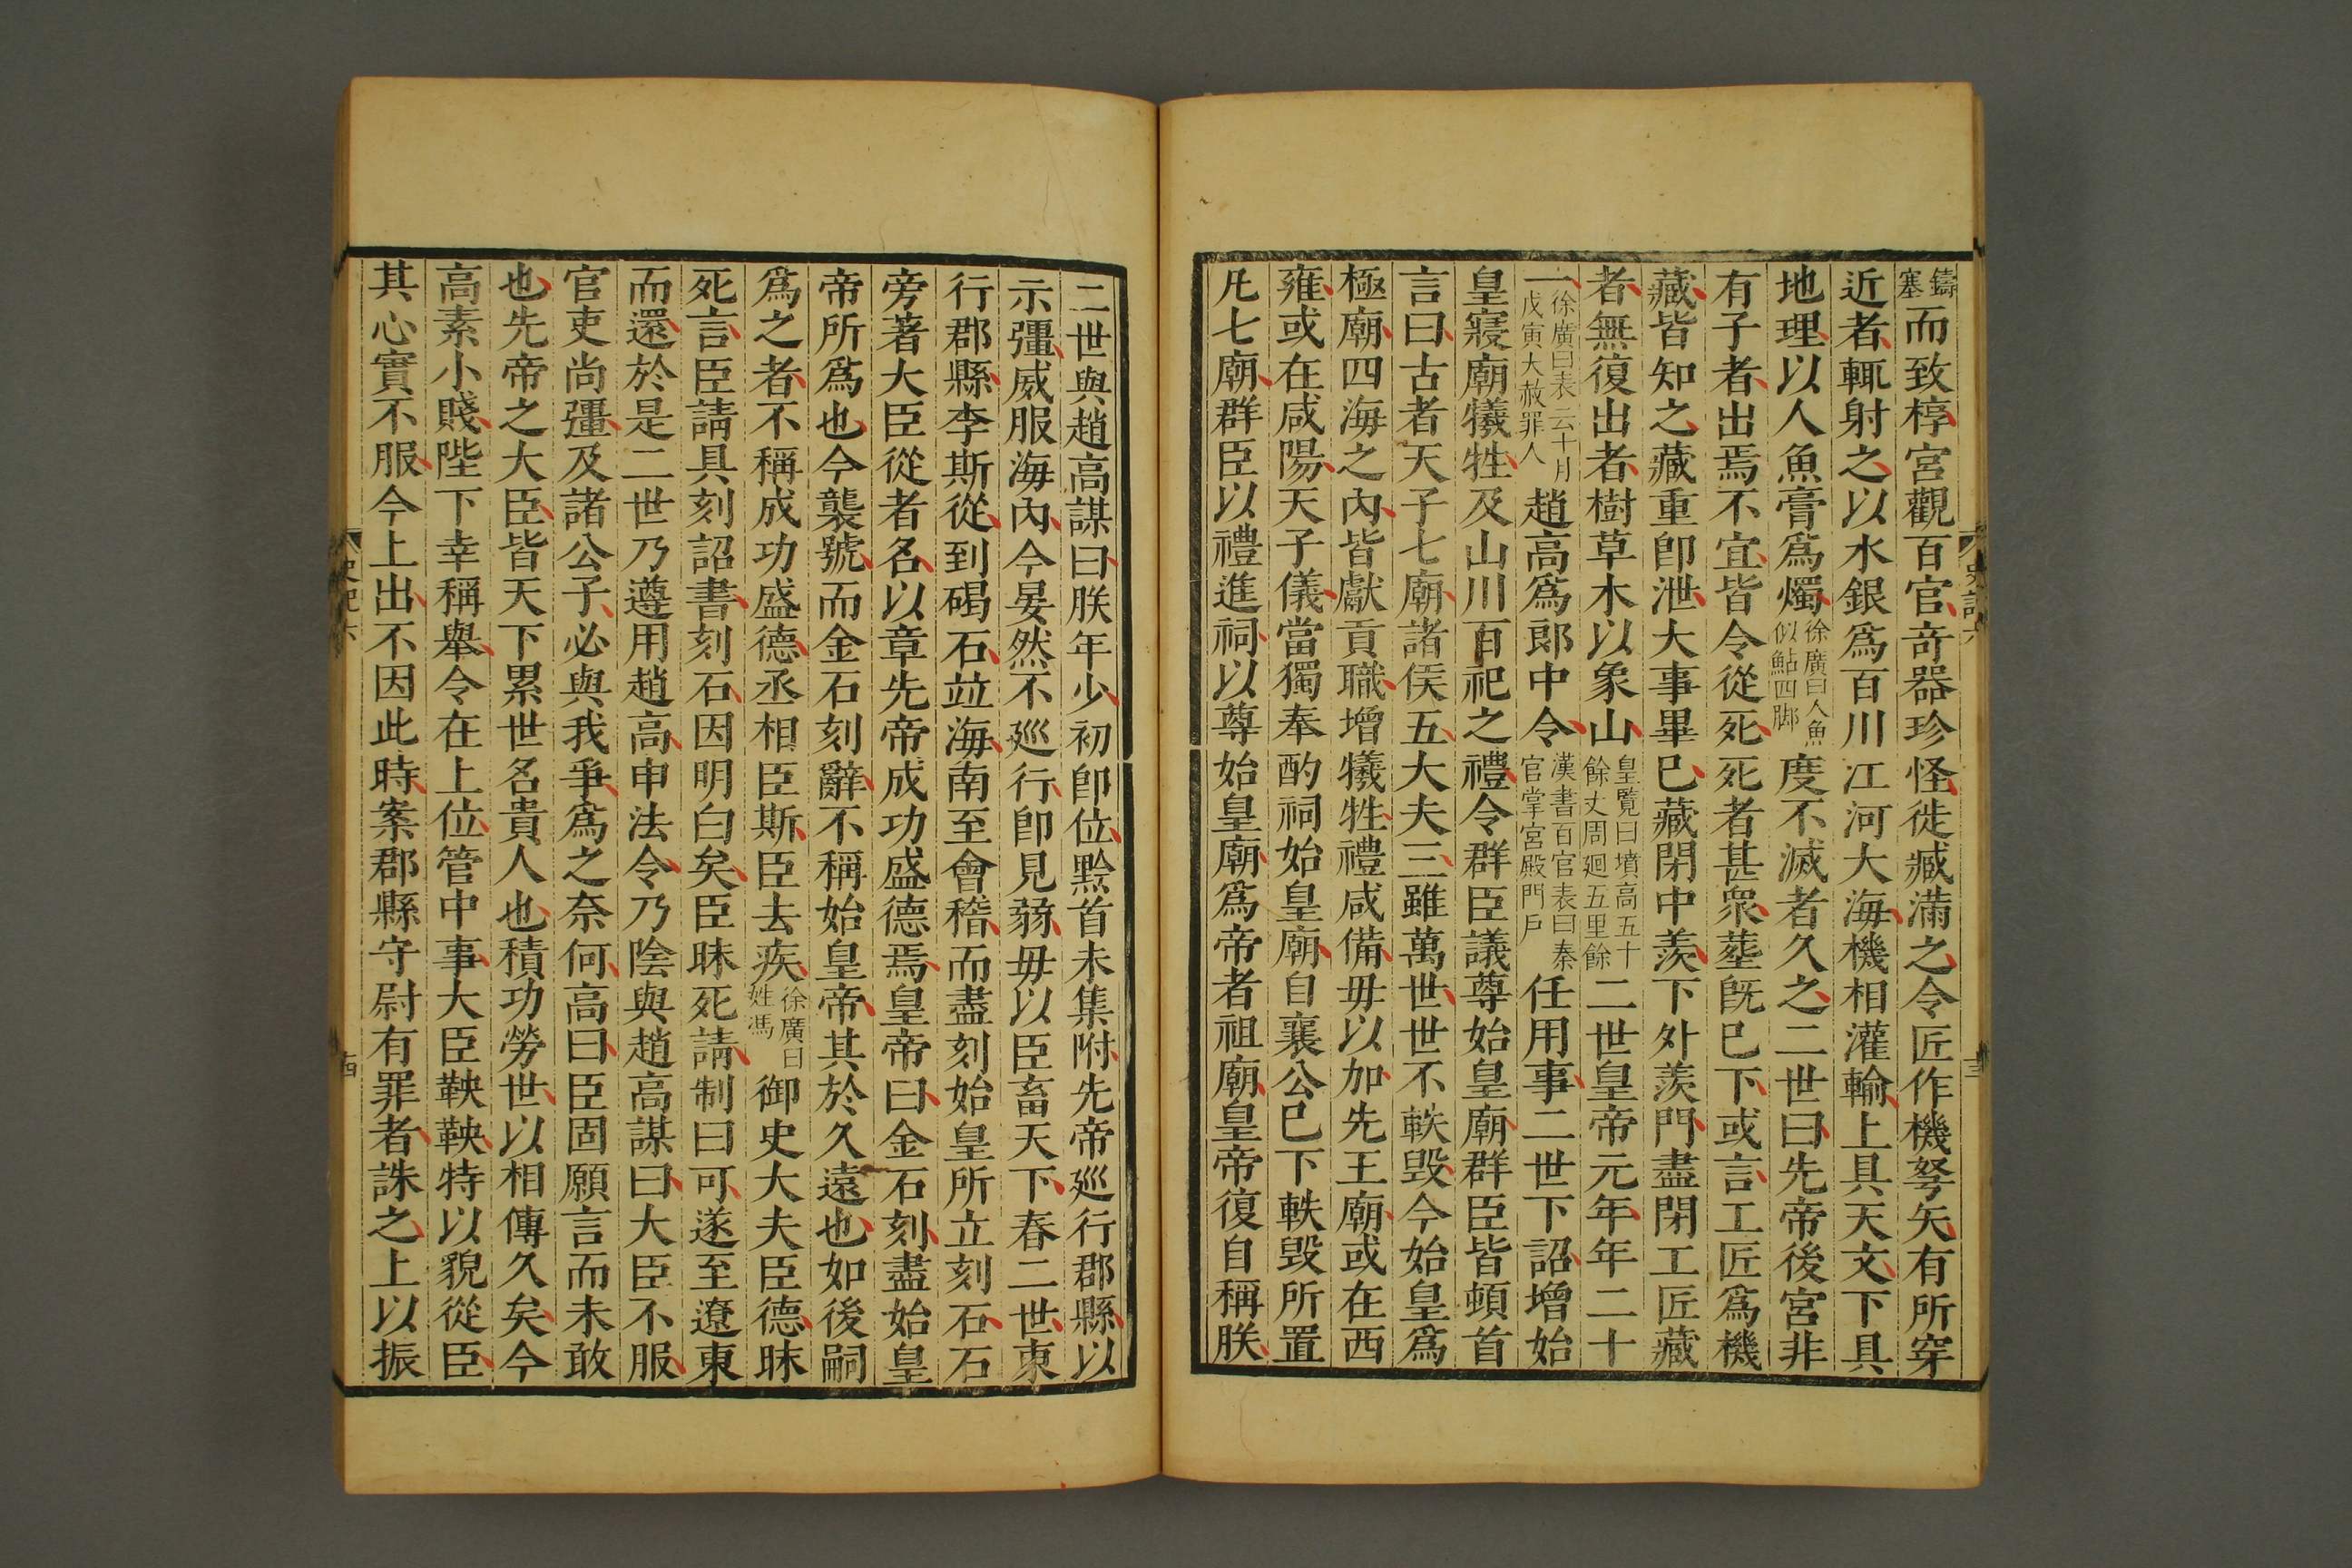 鑄塞而致椁宮觀百官竒器珍怪徙臧滿之令匠作機弩矢有所穿
近者輒射之以水銀爲百川江河大海機相灌輸上具天文下具
地理以人魚膏爲燭徐廣曰人魚似鮎四脚度不滅者久之二世曰先帝後宮非
有子者出焉不宜皆令從死死者甚衆葬旣已下或言工匠爲機
藏皆知之藏重卽泄大事畢已藏閉中羨下外羨門盡閉工匠藏
者無復出者樹草木以象山皇覽曰墳高五十餘丈周廻五里餘二世皇帝元年年二十
一徐廣曰表云十月戊寅大赦罪人趙高爲郎中令漢書百官表曰秦官掌宮殿門戶任用事二世下詔增始
皇寢廟犧牲及山川百祀之禮令群臣議尊始皇廟群臣皆頓首
言曰古者天子七廟諸侯五大夫三雖萬世世不軼毀今始皇爲
極廟四海之內皆獻貢職增犧牲禮咸備毋以加先王廟或在西
雍或在咸陽天子儀當獨奉酌祠始皇廟自襄公已下軼毀所置
凡七廟群臣以禮進祠以尊始皇廟爲帝者祖廟皇帝復自稱朕
二世與趙高謀曰朕年少初卽位黔首未集附先帝廵行郡縣以
示彊威服海內今晏然不廵行卽見弱毋以臣畜天下春二世東
行郡縣李斯從到碣石竝海南至會稽而盡刻始皇所立刻石石
旁著大臣從者名以章先帝成功盛德焉皇帝曰金石刻盡始皇
帝所爲也今襲號而金石刻辭不稱始皇帝其於久遠也如後嗣
爲之者不稱成功盛德丞相臣斯臣去疾徐廣曰姓馮御史大夫臣德昧
死言臣請具刻詔書刻石因明白矣臣昧死請制曰可遂至遼東
而還於是二世乃遵用趙高申法令乃陰與趙高謀曰大臣不服
官吏尚彊及諸公子必與我爭爲之奈何高曰臣固願言而未敢
也先帝之大臣皆天下累世名貴人也積功勞世以相傳久矣今
高素小賤陛下幸稱舉令在上位管中事大臣鞅鞅特以貌從臣
其心實不服今上出不因此時案郡縣守尉有罪者誅之上以振
史記六
十四